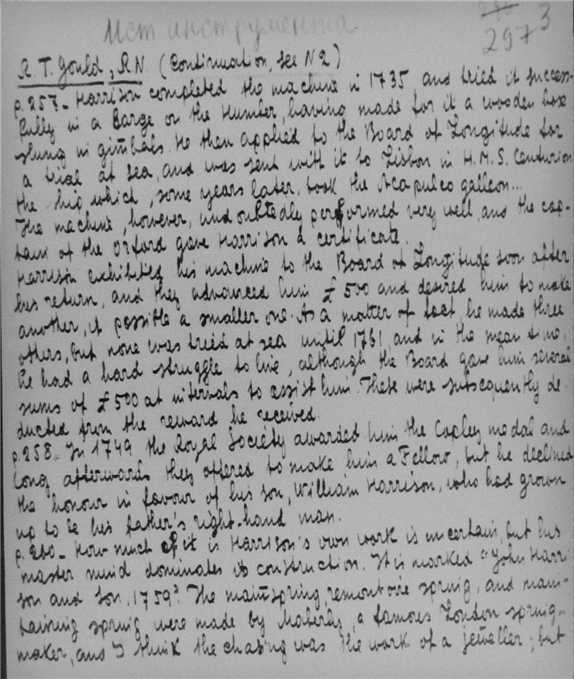 Ист инструмента
297 3
R. T. Gould, RN (Continuation, see N2)
p. 257 – Harrison completed the machine in 1735 and tried it success-
fully in a barge on the Humber, having made for it a wooden box
slung in gimbals. He then applied to the Board of Longitude for
a trial at sea, and was sent with it to Lisbon in H.M.S. Centurion
the ship which, some years later, took the Acapulco galleon...
The machine, however, undoubtedly performed very well, and the cap-
tain of the Orford gave Harrison a certificate.
Harrison exhibited his machine to the Board of Longitude soon after
his return, and they advanced him £500 and desired him to make
another, if possible a smaller one. As a matter of fact he made three
others, but none was tried at sea until 1761, and in the mean time,
he had a hard struggle to live, although the Board gave him several
sums of £500 at intervals to assist him. These were subsequently de-
ducted from the reward he received.
p. 258 – In 1749 the Royal Society awarded him the Copley medal and
long afterwards they offered to make him a Fellow, but he declined
the honour in favour of his son, William Harrison, who had grown
up to be his father's right-hand man.
p. 260 – How much of it is Harrison's own work is uncertain, but his
master mind dominates its construction. It is marked "John Harri-
son and Son, 1759". The mainspring remontoire spring, and main-
taining spring were made by Maberly, a famous London spring-
maker, and I think the chasing was the work of a jeweller; but